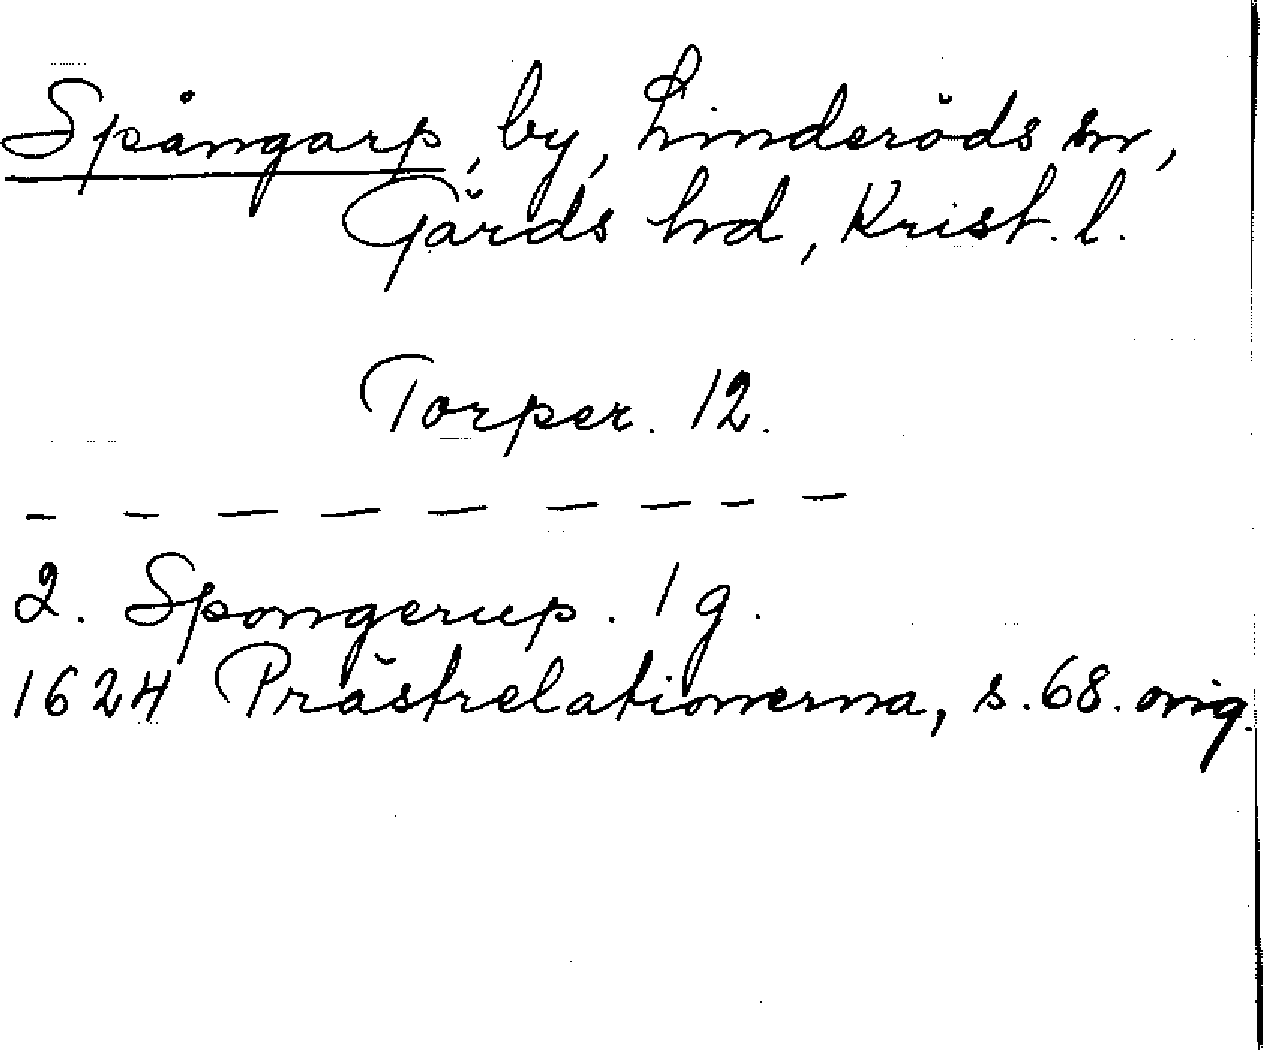 Spångarp, by, Linderöds sn,
Gärds hd, Krist. l.
Torper. 12.
— — — — — — — — —
2. Spongerup. 1 g.
1624 Prästrelationerna, s. 68. orig.